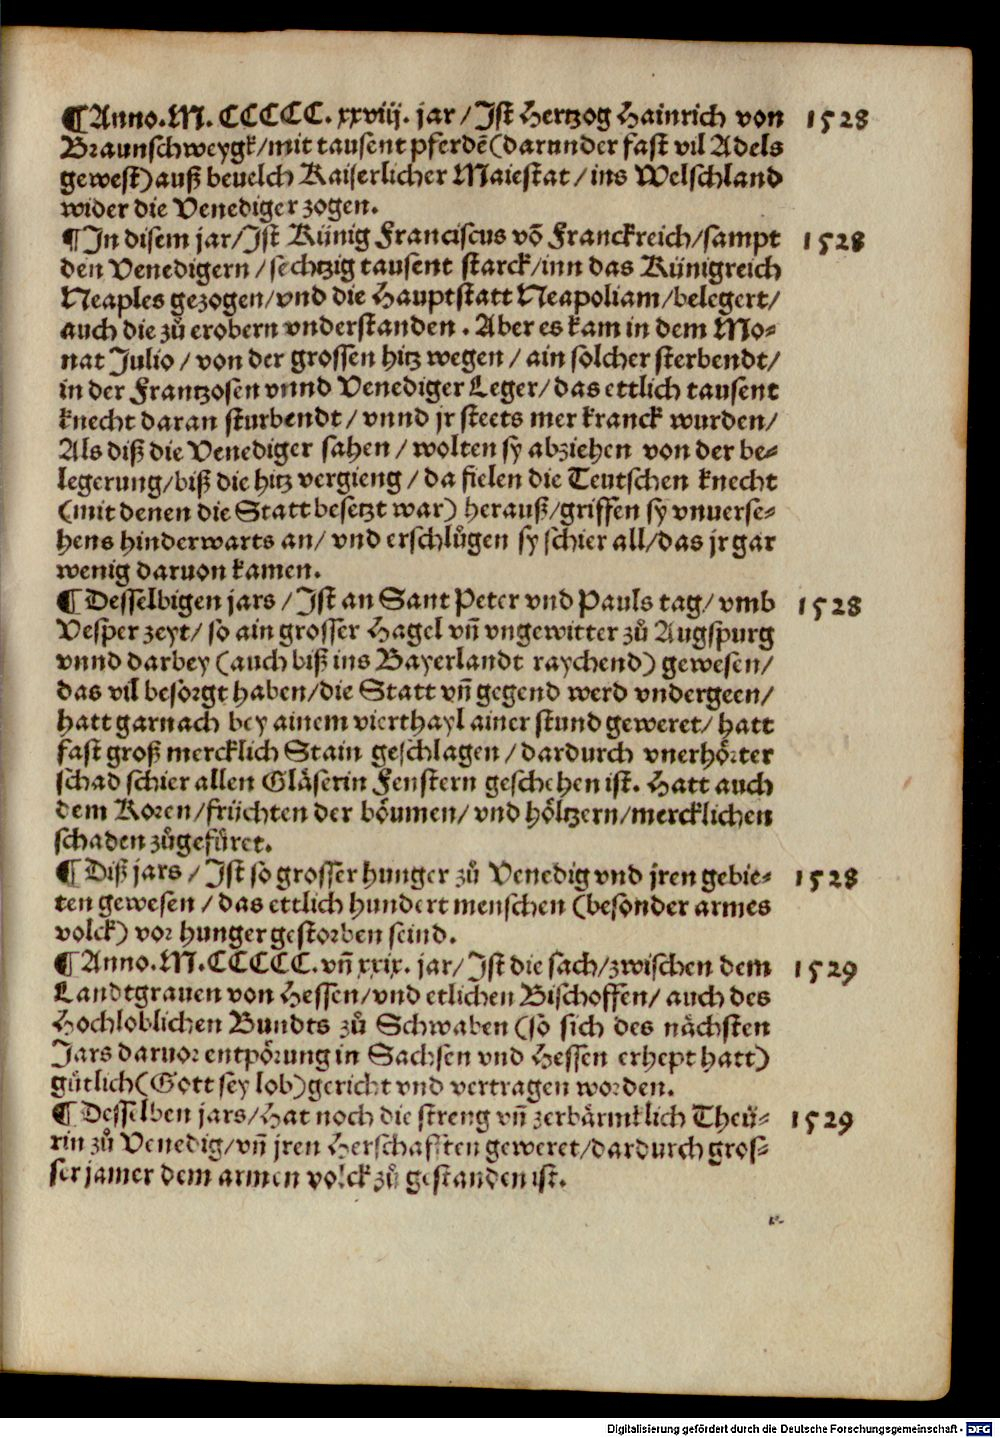 ¶Anno.M.CCCCC.xxviij. jar/Ist Hertzog Hainrich von 1528
Braunschweygk/mit tausent pferdē(darunder fast vil Adels
gewest)auß beuelch Kaiserlicher Maiestat/ins Welschland
wider die Venediger zogen.
¶In disem jar/Ist Künig Franciscus vō Franckreich/sampt 1528
den Venedigern/sechtzig tausent starck/inn das Künigreich
Neaples gezogen/vnd die Hauptstatt Neapoliam/belegert/
auch die zů erobern vnderstanden. Aber es kam in dem Mo-
nat Julio/von der grossen hitz wegen/ain solcher sterbendt/
in der Frantzosen vnnd Venediger Leger/das ettlich tausent
knecht daran sturbendt/vnnd jr steets mer kranck wurden/
Als diß die Venediger sahen/wolten sy abziehen von der be-
legerung/biß die hitz vergieng/da fielen die Teutschen knecht
(mit denen die Statt besetzt war) herauß/griffen sy vnuerse-
hens hinderwarts an/vnd erschlůgen sy schier all/das jr gar
wenig daruon kamen.
¶Desselbigen jars/Ist an Sant Peter vnd Pauls tag/vmb 1528
Vesper zeyt/so ain grosser Hagel vn̄ vngewitter zů Augspurg
vnnd darbey(auch biß ins Bayerlandt raychend)gewesen/
das vil besorgt haben/die Statt vn̄ gegend werd vndergeen/
hatt garnach bey ainem vierthayl ainer stund geweret/hatt
fast groß mercklich Stain geschlagen/dardurch vnerhörter
schad schier allen Gläserin Fenstern geschehen ist. Hatt auch
dem Koren/früchten der böumen/vnd höltzern/mercklichen
schaden zůgefüret.
¶Diß jars/Ist so grosser hunger zů Venedig vnd jren gebie- 1528
ten gewesen/das ettlich hundert menschen(besonder armes
volck) vor hunger gestorben seind.
¶Anno.M.CCCCC.vn̄ xxix. jar/Ist die sach/zwischen dem 1529
Landtgrauen von Hessen/vnd etlichen Bischoffen/auch des
Hochloblichen Bundts zů Schwaben(so sich des nächsten
Jars daruor entpörung in Sachsen vnd Hessen erhept hatt)
gütlich(Gott sey lob)gericht vnd vertragen worden.
¶Desselben jars/Hat noch die streng vn̄ zerbärmklich Theü- 1529
rin zů Venedig/vn̄ jren Herschafften geweret/dardurch gros-
ser jamer dem armen volck zů gestanden ist.
Digitalisierung gefördert durch die Deutsche Forschungsgemeinschaft - DFG